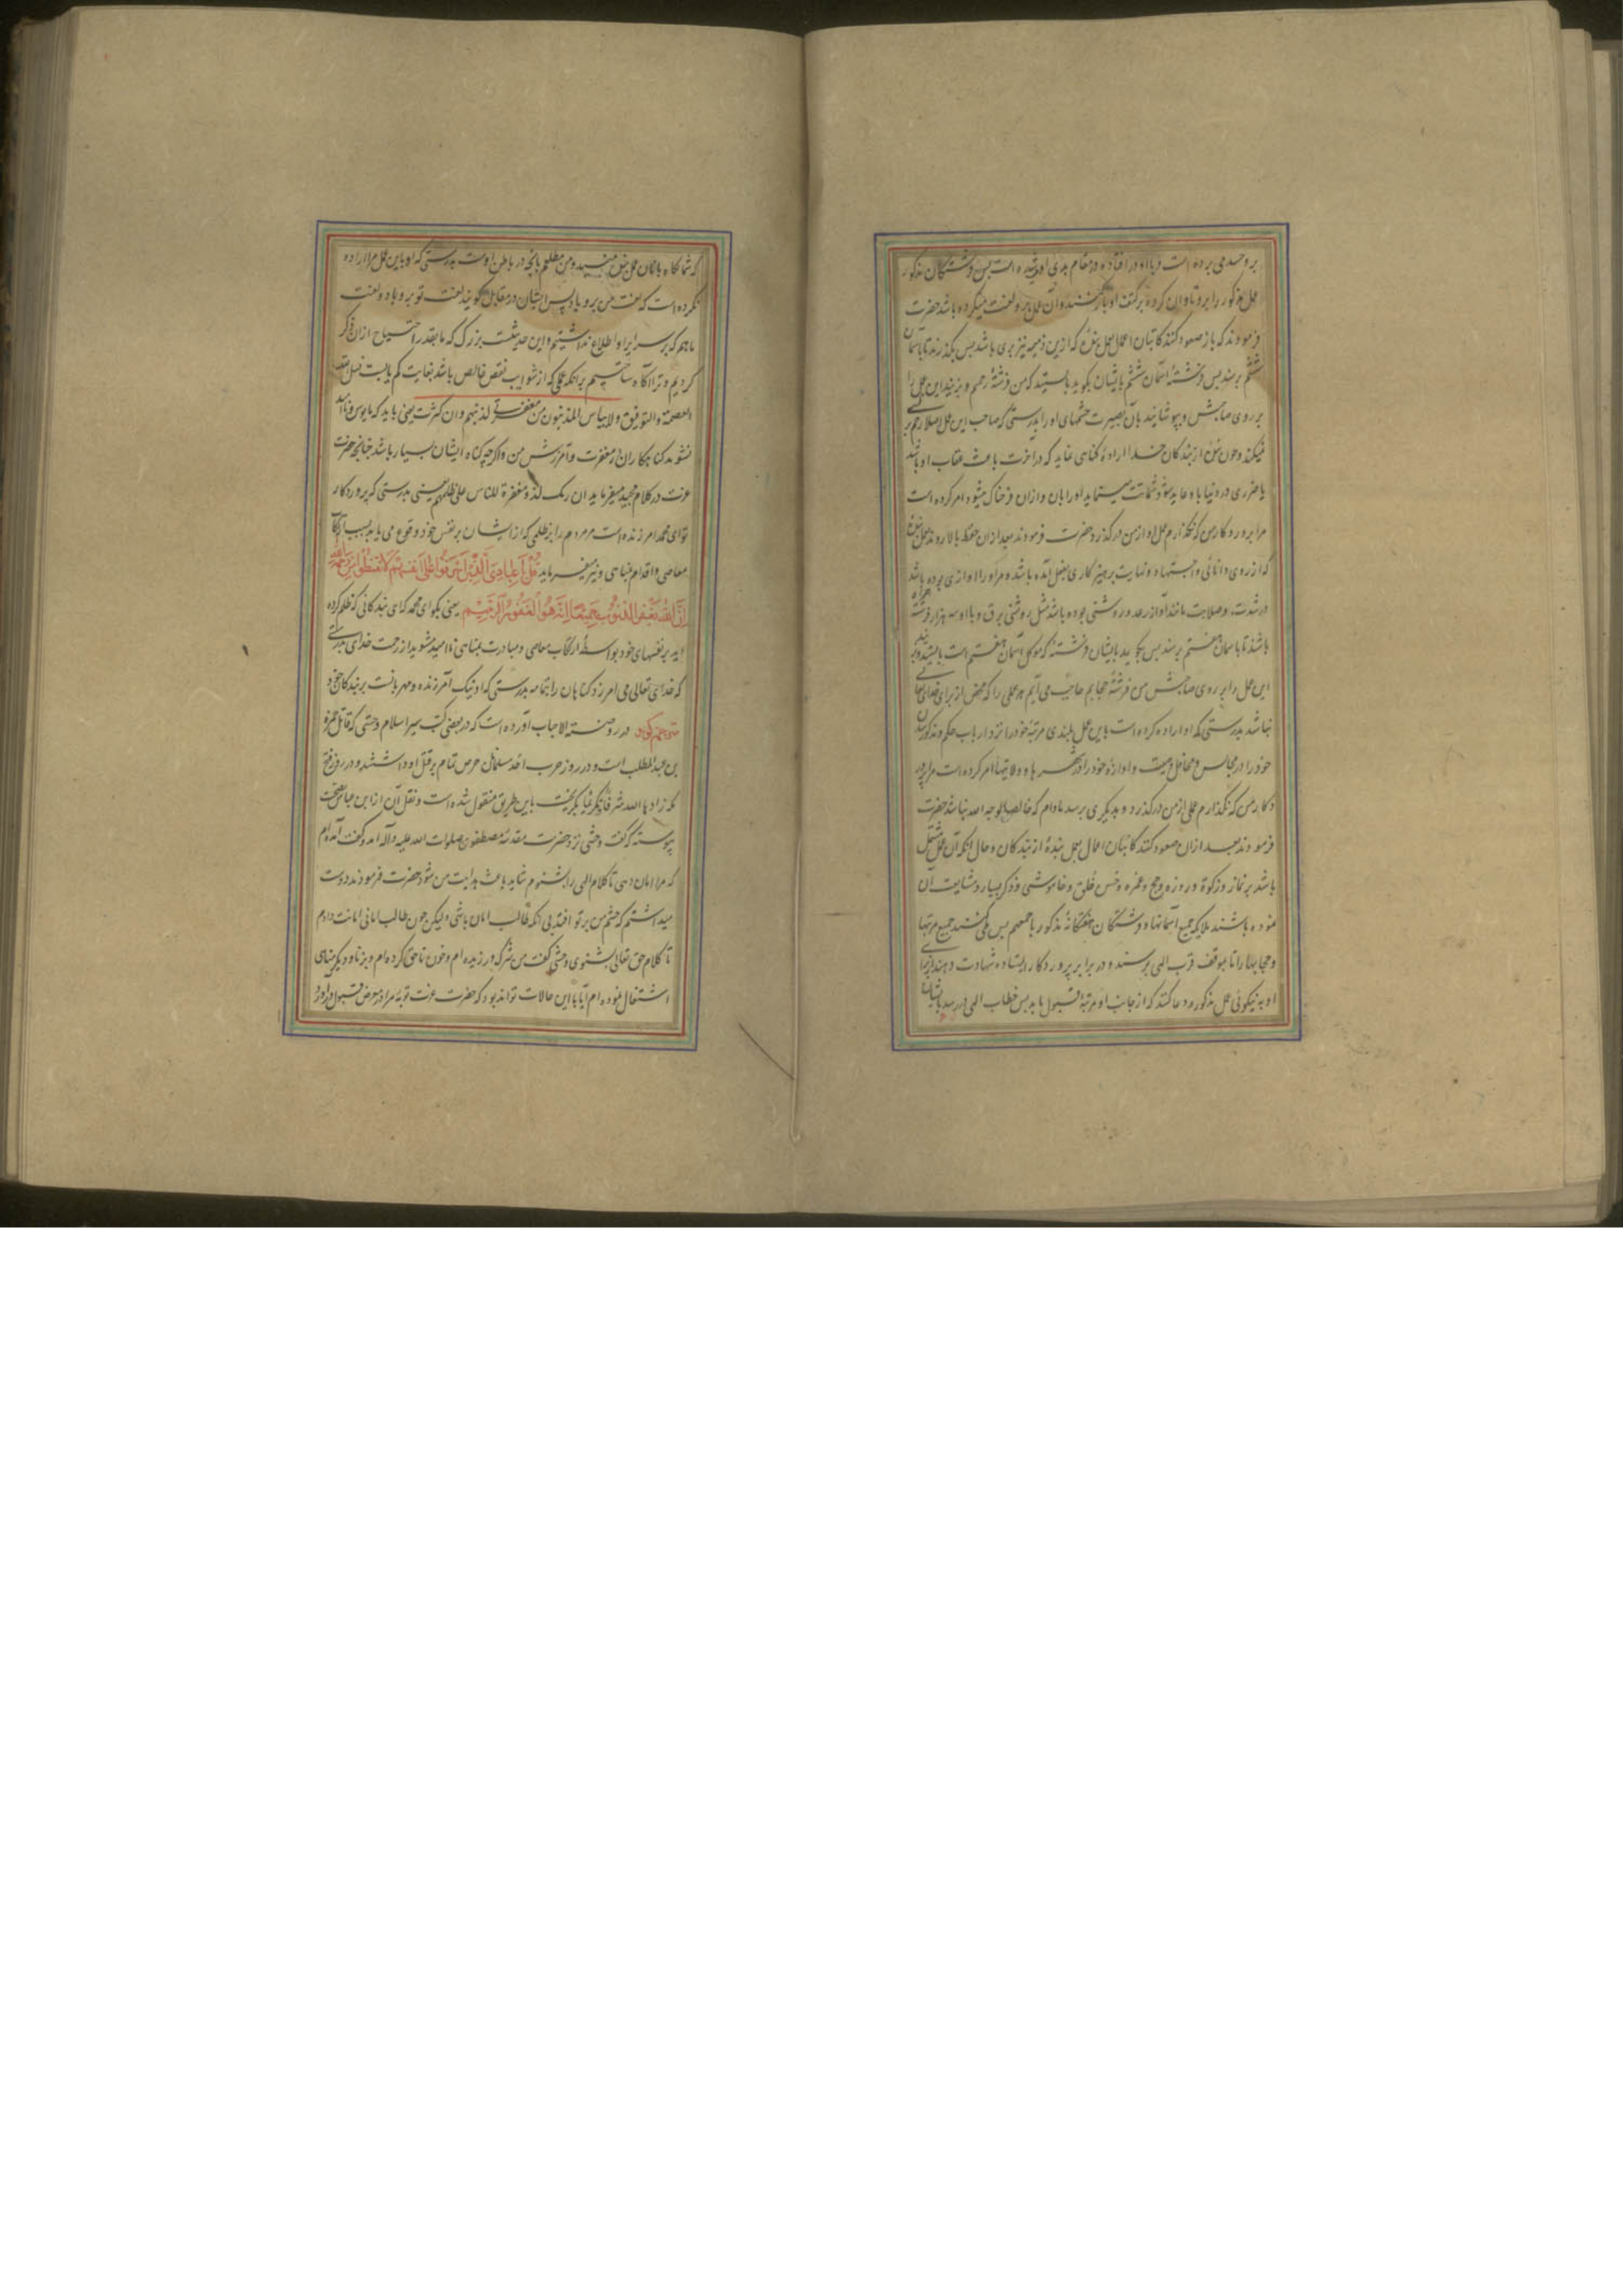 بر وحسد می برده است و با او در افتاده و در مقام بدی او شده است پس فرشتگان مذکور
عمل مذکور را برو تاوان کرده بر کتف او بار کنند و آن عمل برو لعنت میکرده باشد حضرت
فرمودند که باز صعود کنند کاتبان اعمال بعمل بنده که ازین ذمیمه نیز بری باشد پس بگذرند تا بآسمان
ششم برسند پس فرشته آسمان ششم بایشان بگوید بایستید که من فرشته رحمم و بزنید این عمل را
بر روی صاحبش و بپوشانید بآن بصیرت چشمهای او را بدرستی که صاحب این عمل اصلا رحم
نمیکند و چون بنده از بندگان خدا اراده گناهی نماید که در آخرت باعث عقاب او باشد
یا ضرری در دنیا باو عاید شود شماتت مینماید او را بآن و ازان فرحناک میشود امر کرده است
مرا پروردگار من که نگذارم عمل او از من درگذرد حضرت فرمودند بعد ازان حفظه بالا روند بعمل بنده
که از روی دانائی و اجتهاد و نهایت پرهیزکاری بفعل آمده باشد و مر او را آوازی بوده باشد
در شدت و صلابت مانند آواز رعد و روشنی بوده باشد مثل روشنی برق و با او سه هزار فرشته
باشند تا بآسمان هفتم برسند پس بگوید بایشان فرشته که موکل آسمان هفتم است بایستید و بزنید
این عمل را بر روی صاحبش من فرشته حجابم حاجب می آیم هر عملی را که محض از برای خدای تعالی
نباشد بدرستی که او اراده کرده است باین عمل بلندی مرتبه خود را نزد ارباب حکم و مذکور شدن
خود را در مجالس و محافل و صیت و آوازه خود را در شهرها و ولایتها امر کرده است مرا پرور
دگار من که نگذارم عملی از من درگذرد و بدیگری برسد مادام که خالصا لوجه الله نباشد حضرت
فرمودند بعد ازان صعود کنند کاتبان اعمال بعمل بنده از بندگان و حال آنکه آن عمل مشتمل
باشد بر نماز و زکوة و روزه و حج و عمره و حسن خلق و خاموشی و ذکر بسیار و مشایعت آن
نموده باشند ملایکه جمیع آسمانها و فرشتگان هفتگانه مذکور با جمعهم پس طی کنند جمیع مرتبها
و حجابها را تا بموقف قرب الهی برسند و در برابر پروردگار ایستاده شهادت دهند از برای
او به نیکوئی عمل مذکور و دعا کنند که از جانب او مرتبه قبول یابد پس خطاب الهی در رسد بایشان
که شما نگاه بانان عمل بنده منید و من مطلعم بآنچه در باطن اوست بدرستی که او باین عمل مرا اراده
نکرده است که لعنت من برو باد پس ایشان در مقابل گویند لعنت تو برو باد و لعنت
ما هم که بر سرایر او اطلاع نداشتیم و این حدیثست بزرگ که ما بقدر احتیاج ازان ذکر
کردیم و ترا آگاه ساختیم بر آنکه عملی که از شوایب نقص خالص باشد بغایت کم یابست نسل الله
العصمة والتوفیق ولا ییاس المذنبون من مغفرتی لذنبهم وان کثرت یعنی باید که مایوس و ناامید
نشوند گناهکاران از مغفرت و آمرزش من و اگرچه گناه ایشان بسیار باشد چنانچه حضرت
عزت در کلام مجید میفرماید ان ربک لذو مغفرة للناس علی ظلمهم یعنی بدرستی که پروردگار
تو ای محمد آمرزنده است مر مردم را بر ظلمی که از ایشان بر نفس خود وقوع می یابد بسبب ارتکاب
معاصی و اقدام مناهی و نیز میفرماید قُل یا عبادی الذین اسرفوا علی انفسهم لا تقنطوا من رحمة الله
ان الله یغفر الذنوب جمیعا انه هو الغفور الرحیم یعنی بگو ای محمد که ای بندگانی که ظلم کرده
اید بر نفسهای خود بواسطه ارتکاب معاصی و مبادرت بمناهی ناامید مشوید از رحمت خدای بدرستی
که خدای تعالی می آمرزد گناهان را بتمامه بدرستی که او نیک آمرزنده و مهربانست بر بندگان خود
مترجم گوید در روضة الاحباب آورده است که در بعضی کتب سیر اسلام وحشی که قاتل حمزه
بن عبد المطلب است و در روز حرب احد مسلمانان حرص تمام بر قتل او داشتند و در روز فتح
مکه زادها الله شرفا بگریخت باین طریق منقول شده است و نقل آن از ابن عباس بصحت
پیوسته که گفت وحشی نزد حضرت مقدسه مصطفویه صلوات الله علیه و آله آمد و گفت آمده ام
که مرا امان دهی تا کلام الهی را بشنوم شاید باعث هدایت من شود حضرت فرمودند دوست
میداشتم که چشم من بر تو افتد بی آنکه طالب امان باشی ولیکن چون طالب امانی امانت دادم
تا کلام حق تعالی بشنوی وحشی گفت من شرک ورزیده ام و خون ناحق کرده ام و بزنا و دیگر مناهی
اشتغال نموده ام آیا با این حالات تواند بود که حضرت عزت توبه مرا در معرض قبول در آورد